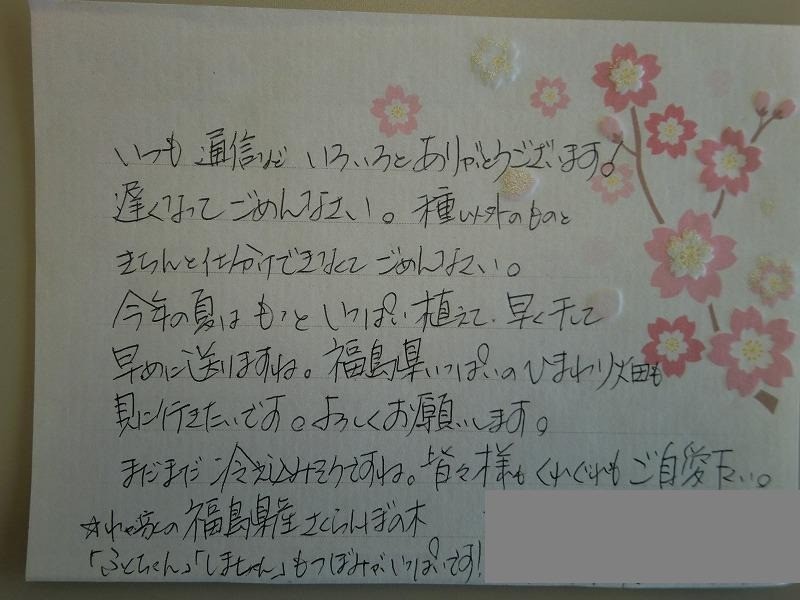 いつも通信など いろいろとありがとうございます!
遅くなってごめんなさい。種以外のものと
きちんと仕分けできなくてごめんなさい。
今年の夏は もっと いっぱい植えて、早く干して
早めに送りますね。福島県いっぱいのひまわり畑も
見に行きたいです。よろしくお願いします。
まだまだ冷え込みそうですね。皆々様もくれぐれもご自愛下さい。
☆わが家の福島県産さくらんぼの木
「ふくちゃん」「しまちゃん」もつぼみがいっぱいです!